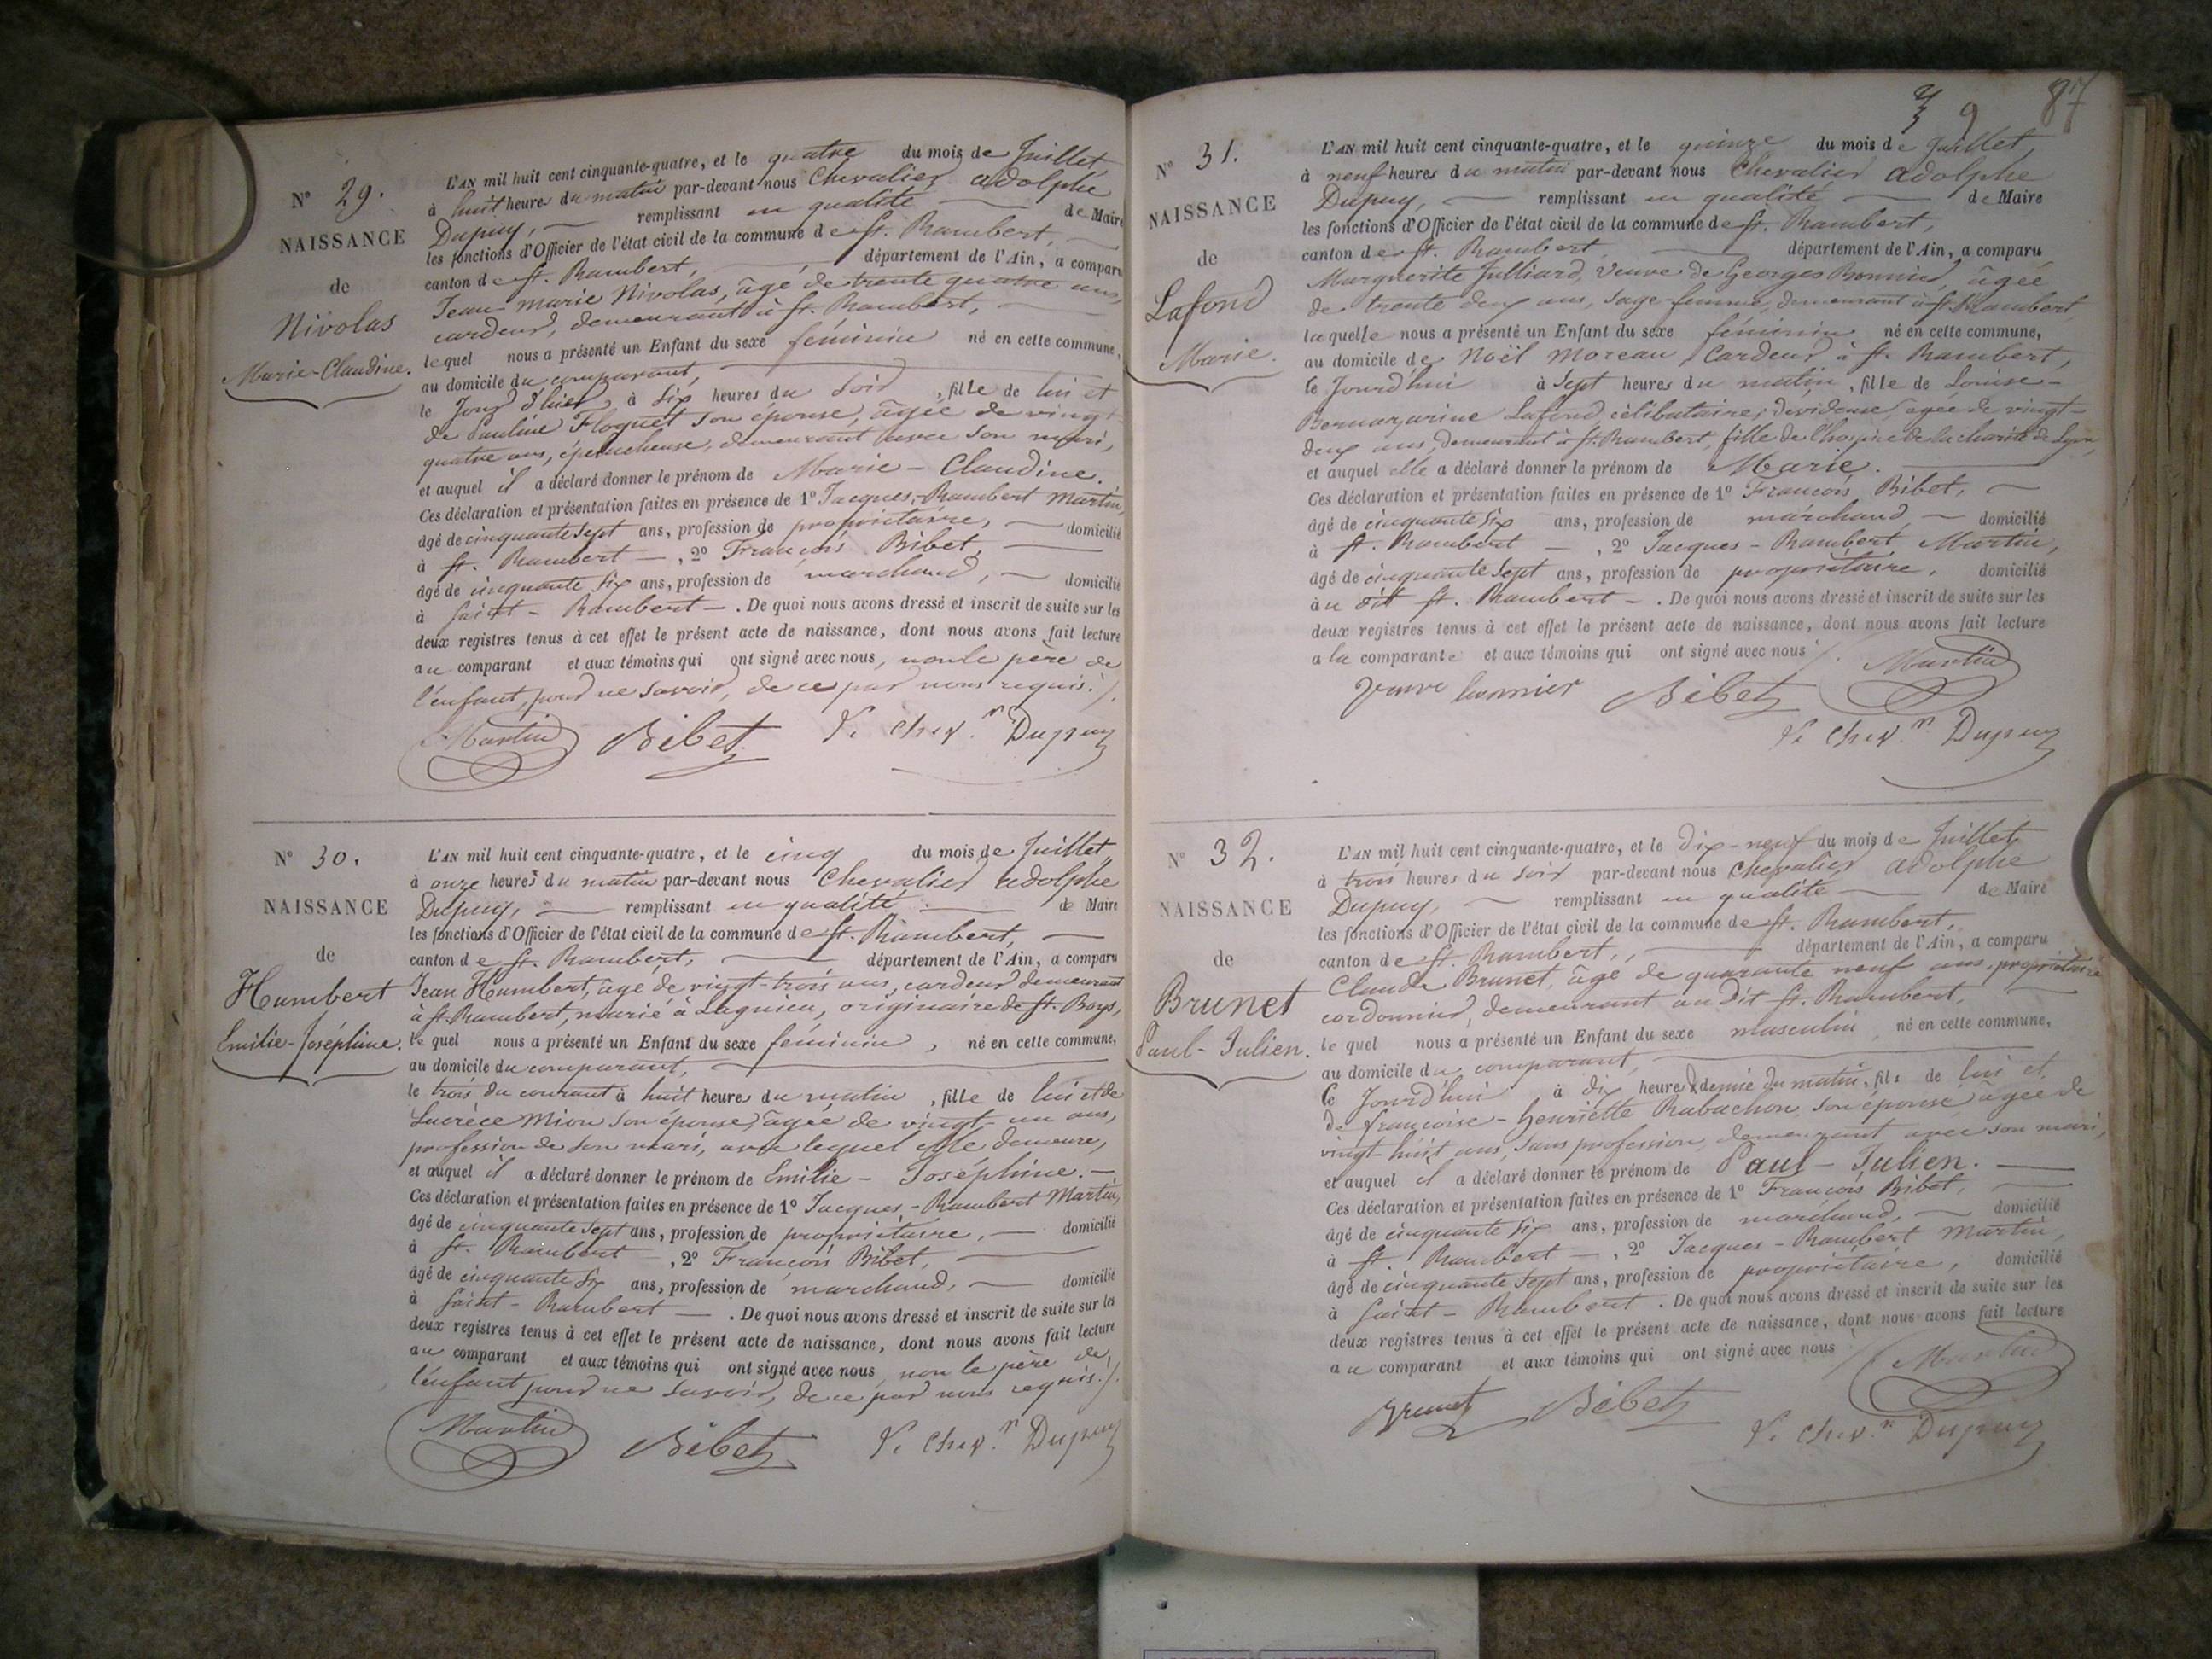 N° 29.
NAISSANCE
de
Nivolas
Marie-Claudine.
L'AN mil huit cent cinquante-quatre, et le quatre du mois de Juillet
à huit heures du matin par-devant nous Chevalier adolphe
Dupuy, remplissant en qualité de Maire
les fonctions d'Officier de l'état civil de la commune de St. Rambert,
canton de St. Rambert, département de l'Ain, a comparu
Jean-Marie Nivolas, âgé de trente quatre ans,
cardeur, demeurant à St. Rambert,
lequel nous a présenté un Enfant du sexe féminin né en cette commune,
au domicile du comparant,
le Jour d'hier à six heures du soir, fille de lui et
de Pauline Floquet son épouse, âgée de vingt-
quatre ans, éplucheuse, demeurant avec son mari,
et auquel il a déclaré donner le prénom de Marie-Claudine.
Ces déclaration et présentation faites en présence de 1° Jacques-Rambert Martin,
âgé de cinquante sept ans, profession de propriétaire, domicilié
à St. Rambert, 2° François Bibet,
âgé de cinquante six ans, profession de marchand, domicilié
à Saint-Rambert. De quoi nous avons dressé et inscrit de suite sur les
deux registres tenus à cet effet le présent acte de naissance, dont nous avons fait lecture
au comparant et aux témoins qui ont signé avec nous, non le père de
l'enfant, pour ne savoir, de ce par nous requis./.
Martin Bibet Chev. n Dupuy
N° 30.
NAISSANCE
de
Humbert
Emilie-Joséphine.
L'AN mil huit cent cinquante-quatre, et le cinq du mois de Juillet
à onze heures du matin par-devant nous Chevalier adolphe
Dupuy, remplissant en qualité de Maire
les fonctions d'Officier de l'état civil de la commune de St. Rambert,
canton de St. Rambert, département de l'Ain, a comparu
Jean Humbert, âgé de vingt-trois ans, cardeur demeurant
à St. Rambert, marié à Lagnieu, originaire de St. Boys,
lequel nous a présenté un Enfant du sexe féminin, né en cette commune,
au domicile du comparant,
le trois du courant à huit heures du matin, fille de lui et de
Lucrèce Mion son épouse, âgée de vingt-un ans,
profession de son mari, avec lequel elle demeure,
et auquel il a déclaré donner le prénom de Emilie-Joséphine.
Ces déclaration et présentation faites en présence de 1° Jacques-Rambert Martin,
âgé de cinquante sept ans, profession de propriétaire, domicilié
à St. Rambert, 2° François Bibet,
âgé de cinquante six ans, profession de marchand, domicilié
à Saint-Rambert. De quoi nous avons dressé et inscrit de suite sur les
deux registres tenus à cet effet le présent acte de naissance, dont nous avons fait lecture
au comparant et aux témoins qui ont signé avec nous, non le père de
l'enfant pour ne savoir, de ce par nous requis./.
Martin Bibet Chev. n Dupuy
9 87
N° 31.
NAISSANCE
de
Lafond
Marie.
L'AN mil huit cent cinquante-quatre, et le quinze du mois de Juillet,
à neuf heures du matin par-devant nous Chevalier adolphe
Dupuy, remplissant en qualité de Maire
les fonctions d'Officier de l'état civil de la commune de St. Rambert,
canton de St. Rambert, département de l'Ain, a comparu
Marguerite Julliard, veuve de Georges Bonnier, âgée
de trente deux ans, sage-femme, demeurant à St. Rambert
laquelle nous a présenté un Enfant du sexe féminin né en cette commune,
au domicile de Noël Moreau, Cardeur à St. Rambert,
ce Jourd'hui à sept heures du matin, fille de Louise-
Lafond, célibataire, dévideuse, âgée de vingt-
deux ans, demeurant à St. Rambert, fille de l'hospice de la charité de Lyon,
et auquel elle a déclaré donner le prénom de Marie.
Ces déclaration et présentation faites en présence de 1° François Bibet,
âgé de cinquante six ans, profession de marchand, domicilié
à St. Rambert, 2° Jacques-Rambert Martin,
âgé de cinquante sept ans, profession de propriétaire, domicilié
au dit St. Rambert. De quoi nous avons dressé et inscrit de suite sur les
deux registres tenus à cet effet le présent acte de naissance, dont nous avons fait lecture
a la comparante et aux témoins qui ont signé avec nous./. Martin
Bibet
Chev. n Dupuy
N° 32.
NAISSANCE
de
Brunet
Paul-Julien.
L'AN mil huit cent cinquante-quatre, et le Dix-neuf du mois de Juillet
à trois heures du soir par-devant nous Chevalier adolphe
Dupuy, remplissant en qualité de Maire
les fonctions d'Officier de l'état civil de la commune de St. Rambert,
canton de St. Rambert, département de l'Ain, a comparu
Claude Brunet, âgé de quarante neuf ans, propriétaire
cordonnier, demeurant au dit St. Rambert,
lequel nous a présenté un Enfant du sexe masculin né en cette commune,
au domicile du comparant,
ce Jourd'hui à dix heures & demie du matin, fils de lui et
de françoise-henriette Rabachon, son épouse âgée de
vingt-huit ans, sans profession, demeurant avec son mari,
et auquel il a déclaré donner le prénom de Paul-Julien.
Ces déclaration et présentation faites en présence de 1° François Bibet,
âgé de cinquante six ans, profession de marchand, domicilié
à St. Rambert, 2° Jacques-Rambert Martin,
âgé de cinquante sept ans, profession de propriétaire, domicilié
à Saint-Rambert. De quoi nous avons dressé et inscrit de suite sur les
deux registres tenus à cet effet le présent acte de naissance, dont nous avons fait lecture
au comparant et aux témoins qui ont signé avec nous Martin
Brunet Bibet
Chev. n Dupuy